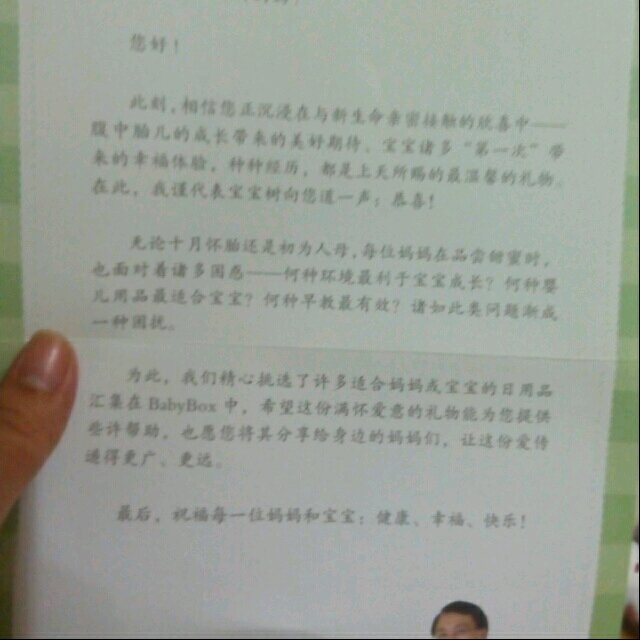 您好！
此刻，相信您正沉浸在与新生命亲密接触的欣喜中——
腹中胎儿的成长带来的美好期待、宝宝诸多“第一次”带
来的幸福体验，种种经历，都是上天所赐的最温馨的礼物。
在此，我谨代表宝宝树向您道一声：恭喜！
无论十月怀胎还是初为人母，每位妈妈在品尝甜蜜时，
也面对着诸多困惑——何种环境最利于宝宝成长？何种婴
儿用品最适合宝宝？何种早教最有效？诸如此类问题渐成
一种困扰。
为此，我们精心挑选了许多适合妈妈或宝宝的日用品
汇集在BabyBox中，希望这份满怀爱意的礼物能为您提供
些许帮助，也愿您将其分享给身边的妈妈们，让这份爱传
递得更广、更远。
最后，祝福每一位妈妈和宝宝：健康、幸福、快乐！